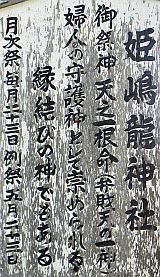 姫嶋龍神社
御祭神 天之一根命(弁財天の一称)
婦人の守護神として崇められる
縁結びの神でもある
月次祭 毎月二十三日 例祭 九月二十三日